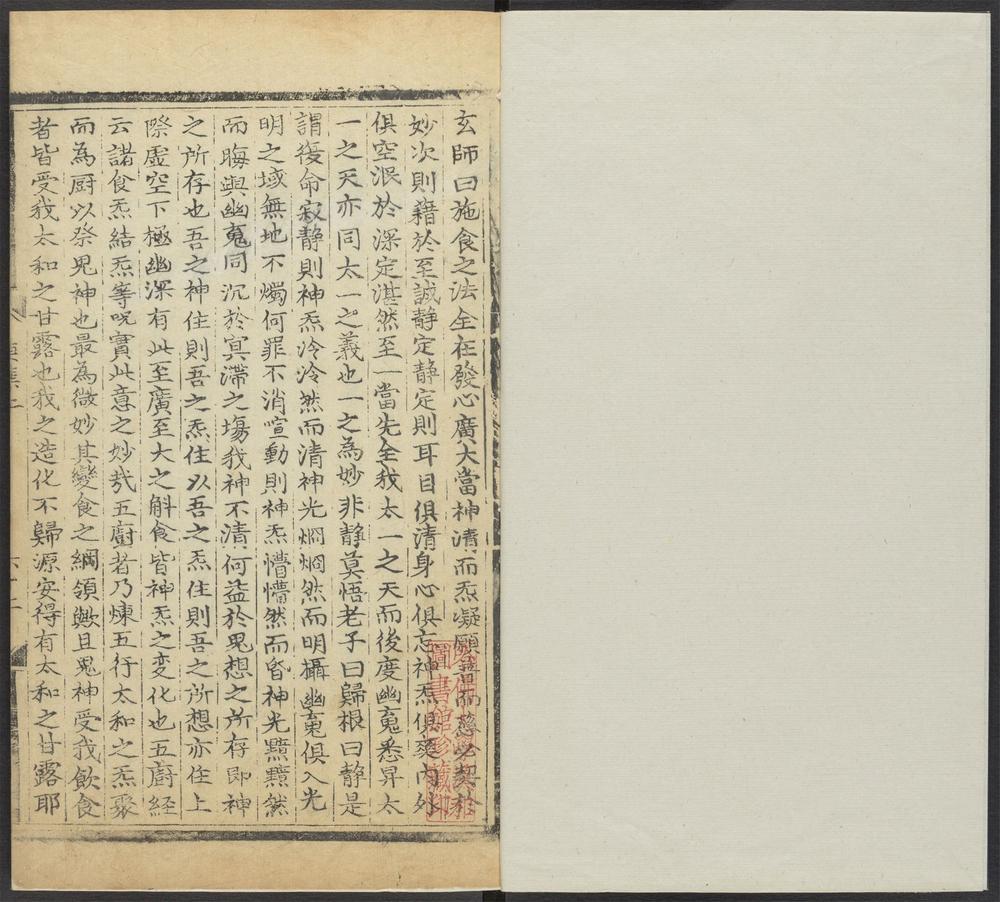 玄師曰施食之法全在發心廣大當神清而炁凝願普而慈必契於
妙次則藉於至誠静定静定則耳目俱清身心俱忘神炁俱爽内外
俱空泯於深定湛然至一當先全我太一之天而後度幽䰟悉昇太
一之天亦同太一之義也一之為妙非静莫悟老子曰歸根曰静是
謂復命寂静則神炁冷冷然而清神光烱烱然而明攝幽䰟俱入光
明之域無地不燭何罪不消喧動則神炁懵懵然而昏神光黯黯然
而晦與幽䰟同沉於冥滯之塲我神不清何益於鬼想之所存即神
之所存也吾之神住則吾之炁住以吾之炁住則吾之所想亦住上
際虚空下極幽深有此至廣至大之斛食皆神炁之变化也五廚經
云諸食炁結炁等呪實此意之妙㦲五廚者乃煉五行太和之炁聚
而為厨以祭鬼神也最為微妙其變食之綱領歟且鬼神受我飲食
者皆受我太和之甘露也我之造化不歸源安得有太和之甘露耶
圖書館珍藏印